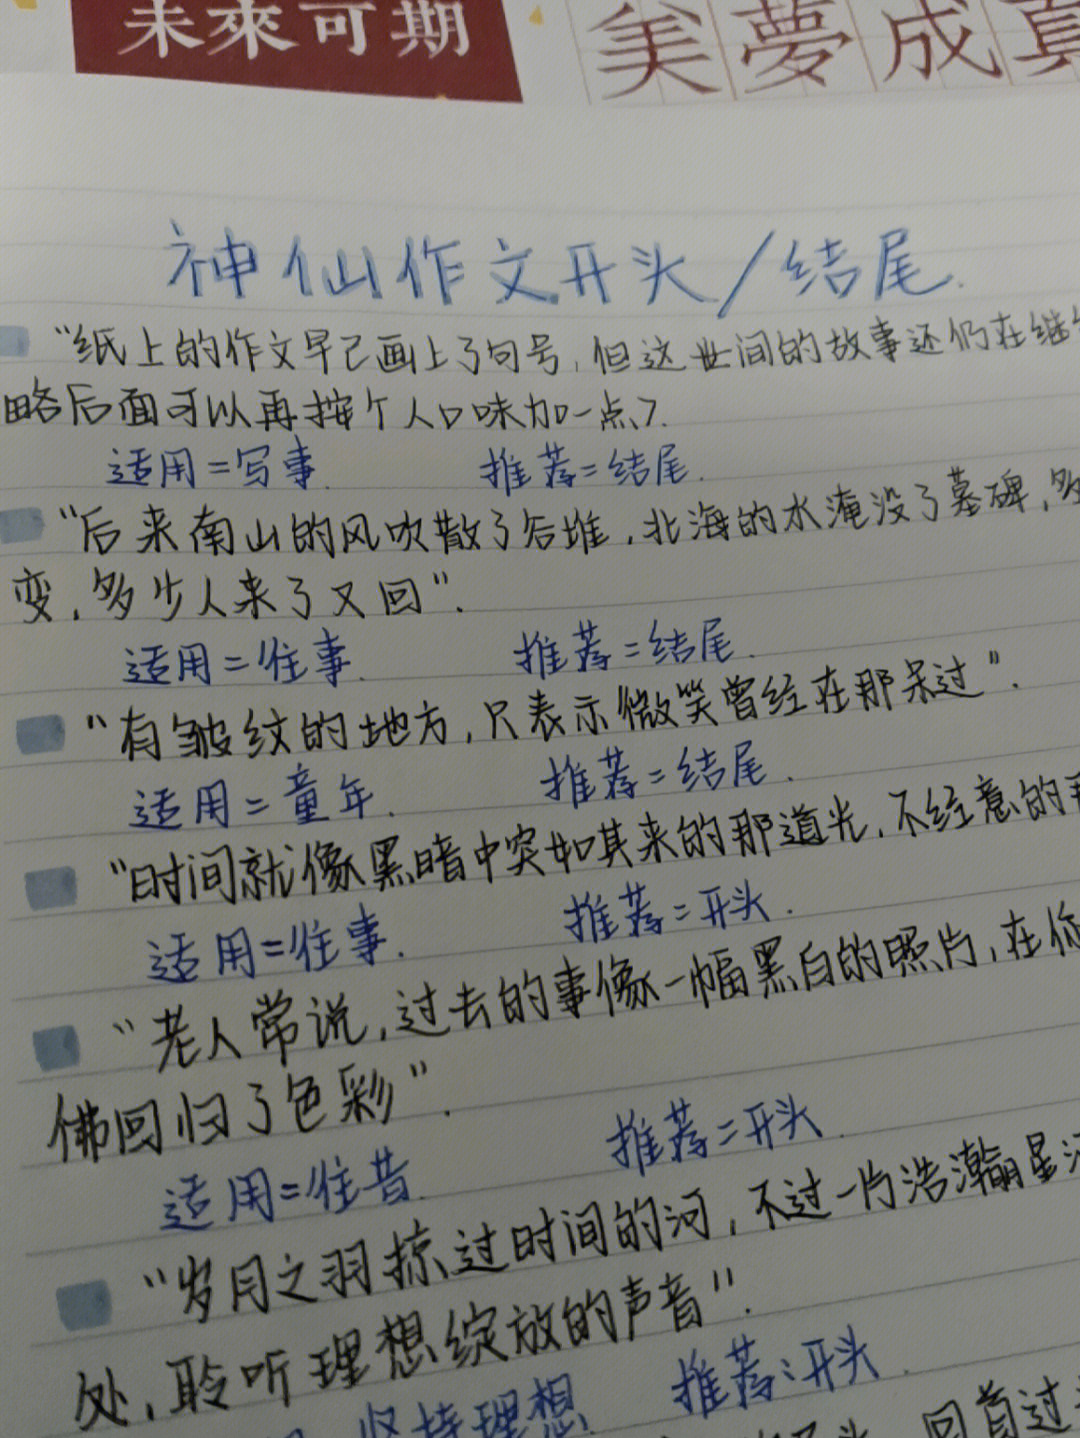 未來可期
美夢成真
神仙作文开头/结尾.
“纸上的作文早已画上了句号,但这世间的故事还仍在继
略后面可以再按个人口味加一点).
适用=写事. 推荐=结尾.
“后来南山的风吹散了谷堆,北海的水淹没了墓碑,多
变,多少人来了又回”.
适用=往事. 推荐=结尾.
“有皱纹的地方,只表示微笑曾经在那呆过”.
适用=童年. 推荐=结尾.
“时间就像黑暗中突如其来的那道光,不经意的
适用=往事. 推荐=开头.
“老人常说,过去的事像一幅黑白的照片,在你
佛回归了色彩”.
适用=往昔. 推荐=开头.
“岁月之羽掠过时间的河,不过一片浩瀚星
处,聆听理想绽放的声音”.
坚持理想 推荐:开头.
回首过